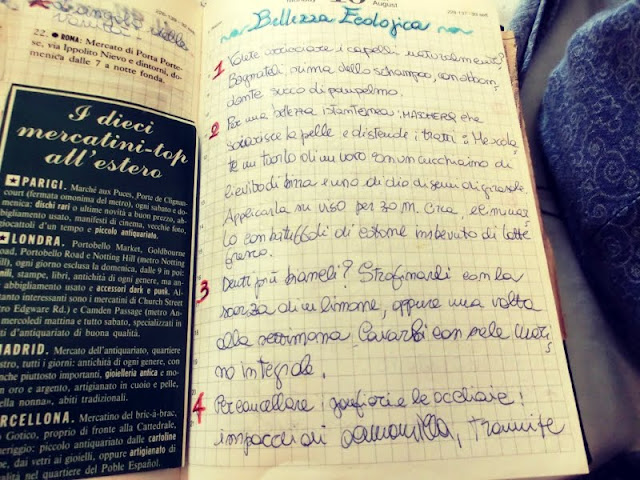 22. ● ROMA: Mercato di Porta Porte-
se, via Ippolito Nievo e dintorni, do-
menica dalle 7 a notte fonda.
I dieci
mercatini-top
all'estero
PARIGI. Marché aux Puces, Porte de Clignan-
court (fermata omonima del metro), ogni sabato e do-
menica: dischi rari o ultime novità a buon prezzo, ab-
bigliamento usato, manifesti di cinema, vecchie foto,
giocattoli d'un tempo e piccolo antiquariato.
LONDRA. Portobello Market, Goldbourne
Road, Portobello Road e Notting Hill (metro Notting
Hill), ogni giorno esclusa la domenica, dalle 9 in poi:
stampe, libri, antichità di ogni genere, ma an-
abbigliamento usato e accessori dark e punk. Al-
tanto interessanti sono i mercatini di Church Street
Edgware Rd.) e Camden Passage (metro An-
mercoledì mattina e tutto sabato, specializzati in
d'antiquariato di buona qualità.
MADRID. Mercato dell'antiquariato, quartiere
tutti i giorni: antichità di ogni genere, con
anche piuttosto importanti, gioielleria antica e mo-
oro e argento, artigianato in cuoio e pelle,
nonna», abiti tradizionali.
BARCELLONA. Mercatino del bric-à-brac,
Gotico, proprio di fronte alla Cattedrale,
piccolo antiquariato dalle cartoline
dai vetri ai gioielli, oppure artigianato di
nel quartiere del Poble Español.
August
Bellezza Ecologica
1 Volete i capelli naturalmente?
Bagnateli, prima dello schampo, con abbon
dante succo di pompelmo.
2 Per una bellezza istantanea: MASCHERA che
schiarisce la pelle e distende i tratti: Mescola
te un tuorlo di un uovo con un cucchiaino di
lievito di birra e uno di olio di semi di girasole.
Applicarla su viso per 30 m. circa, e
con batuffoli di cotone imbevuto di latte
fresco.
3 Denti più bianchi? Strofinarli con la
scorza di un limone, oppure una volta
alla settimana Lavarli con sale mari
no integrale.
4 Per cancellare i gonfiori e le occhiaie!
impacchi di camomilla, tramite